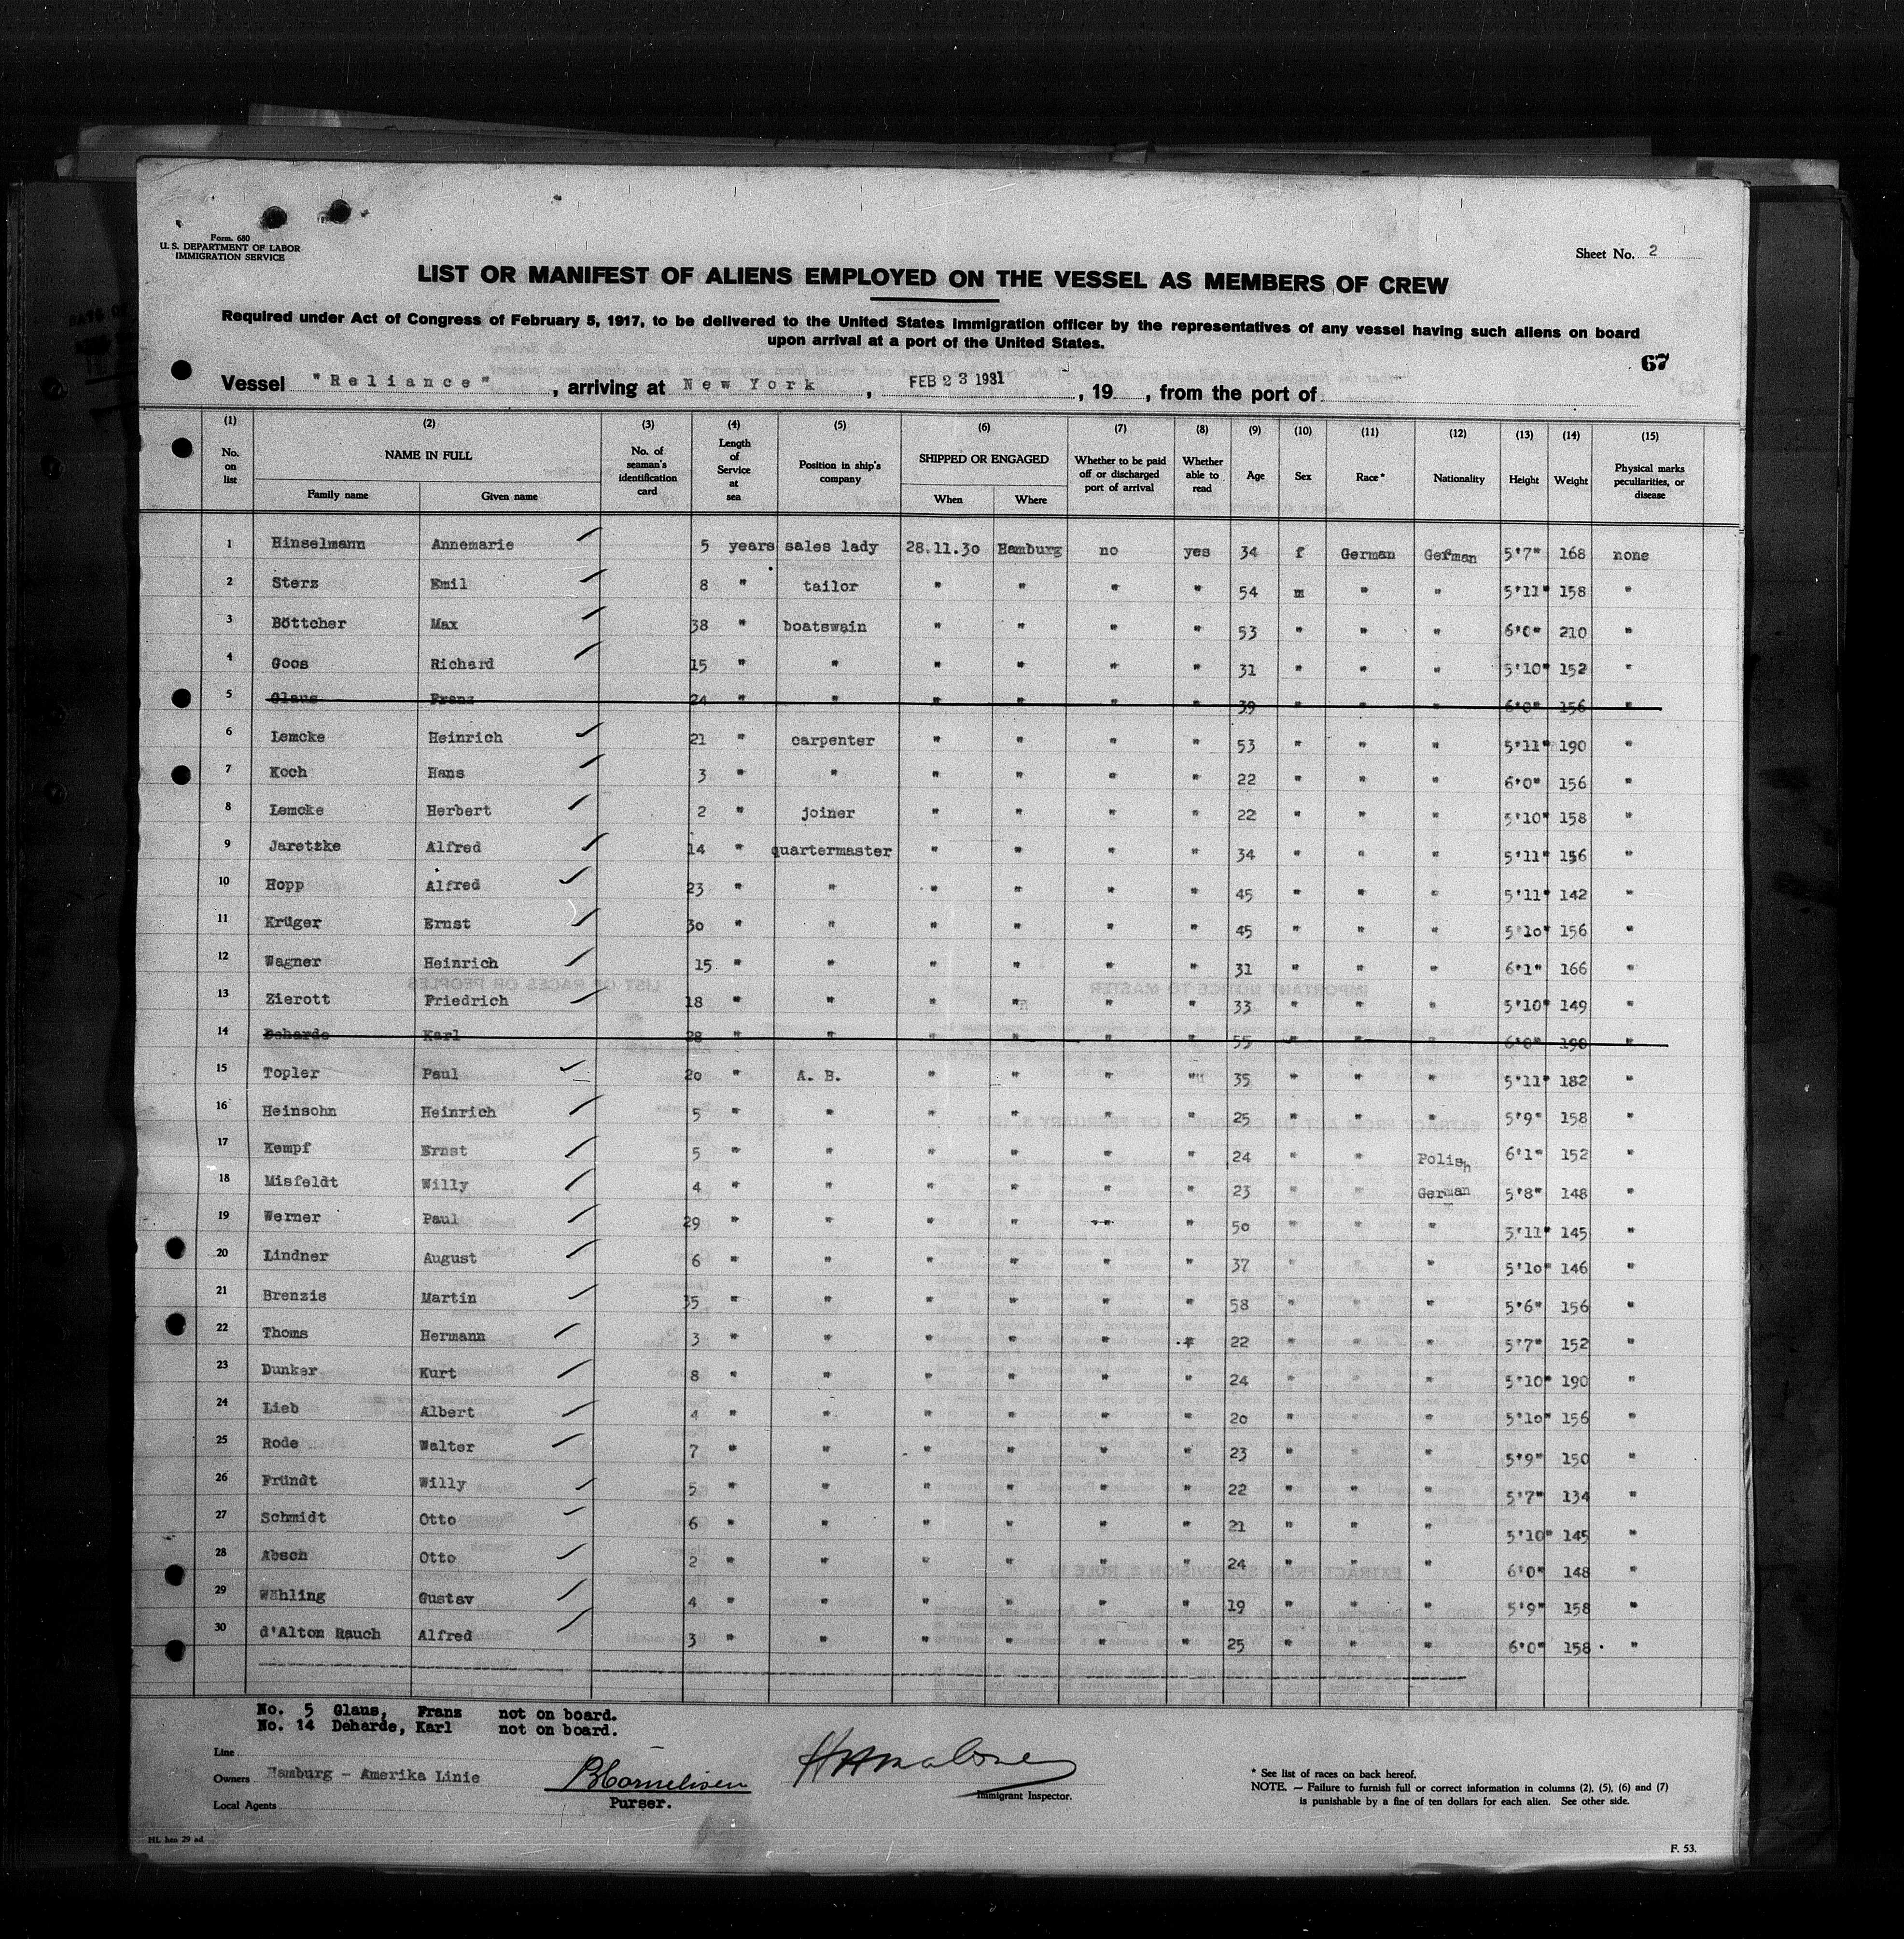 Form. 680
U. S. DEPARTMENT OF LABOR
IMMIGRATION SERVICE
Sheet No. 2
LIST OR MANIFEST OF ALIENS EMPLOYED ON THE VESSEL AS MEMBERS OF CREW
Required under Act of Congress of February 5, 1917, to be delivered to the United States Immigration officer by the representatives of any vessel having such aliens on board
upon arrival at a port of the United States.
67
Vessel "Reliance", arriving at New York, FEB 23 1931, 19, from the port of
(1) (2) (3) (4) (5) (6) (7) (8) (9) (10) (11) (12) (13) (14) (15)
No. on list NAME IN FULL Family name Given name No. of seaman's identification card Length of Service at sea Position in ship's company SHIPPED OR ENGAGED When Where Whether to be paid off or discharged port of arrival Whether able to read Age Sex Race* Nationality Height Weight Physical marks peculiarities, or disease
1 Hinselmann Annemarie 5 years sales lady 28.11.30 Hamburg no yes 34 f German German 5'7" 168 none
2 Sterz Emil 8 " tailor " " " " 54 m " " 5'11" 158 "
3 Böttcher Max 38 " boatswain " " " " 53 " " " 6'0" 210 "
4 Goos Richard 15 " " " " " " 31 " " " 5'10" 152 "
5 Glaus Franz 24 " " " " " " 39 " " " 6'0" 156 "
6 Lemcke Heinrich 21 " carpenter " " " " 53 " " " 5'11" 190 "
7 Koch Hans 3 " " " " " " 22 " " " 6'0" 156 "
8 Lemcke Herbert 2 " joiner " " " " 22 " " " 5'10" 158 "
9 Jaretzke Alfred 14 " quartermaster " " " " 34 " " " 5'11" 156 "
10 Hopp Alfred 23 " " " " " " 45 " " " 5'11" 142 "
11 Krüger Ernst 30 " " " " " " 45 " " " 5'10" 156 "
12 Wagner Heinrich 15 " " " " " " 31 " " " 6'1" 166 "
13 Zierott Friedrich 18 " " " " " " 33 " " " 5'10" 149 "
14 Deharde Karl 28 " " " " " " 55 " " " 6'0" 190 "
15 Topler Paul 20 " A. B. " " " " 35 " " " 5'11" 182 "
16 Heinsohn Heinrich 5 " " " " " " 25 " " " 5'9" 158 "
17 Kempf Ernst 5 " " " " " " 24 " " Polish 6'1" 152 "
18 Misfeldt Willy 4 " " " " " " 23 " " German 5'8" 148 "
19 Werner Paul 29 " " " " " " 50 " " " 5'11" 145 "
20 Lindner August 6 " " " " " " 37 " " " 5'10" 146 "
21 Brenzis Martin 35 " " " " " " 58 " " " 5'6" 156 "
22 Thoms Hermann 3 " " " " " " 22 " " " 5'7" 152 "
23 Dunker Kurt 8 " " " " " " 24 " " " 5'10" 190 "
24 Lieb Albert 4 " " " " " " 20 " " " 5'10" 156 "
25 Rode Walter 7 " " " " " " 23 " " " 5'9" 150 "
26 Fründt Willy 5 " " " " " " 22 " " " 5'7" 134 "
27 Schmidt Otto 6 " " " " " " 21 " " " 5'10" 145 "
28 Absch Otto 2 " " " " " " 24 " " " 6'0" 148 "
29 Wähling Gustav 4 " " " " " " 19 " " " 5'9" 158 "
30 d'Alton Rauch Alfred 3 " " " " " " 25 " " " 6'0" 158 "
No. 5 Glaus, Franz not on board.
No. 14 Deharde, Karl not on board.
Line
Owners Hamburg - Amerika Linie
Local Agents
BCornelisen
Purser.
Immigrant Inspector.
* See list of races on back hereof.
NOTE. — Failure to furnish full or correct information in columns (2), (5), (6) and (7)
is punishable by a fine of ten dollars for each alien. See other side.
F. 53.